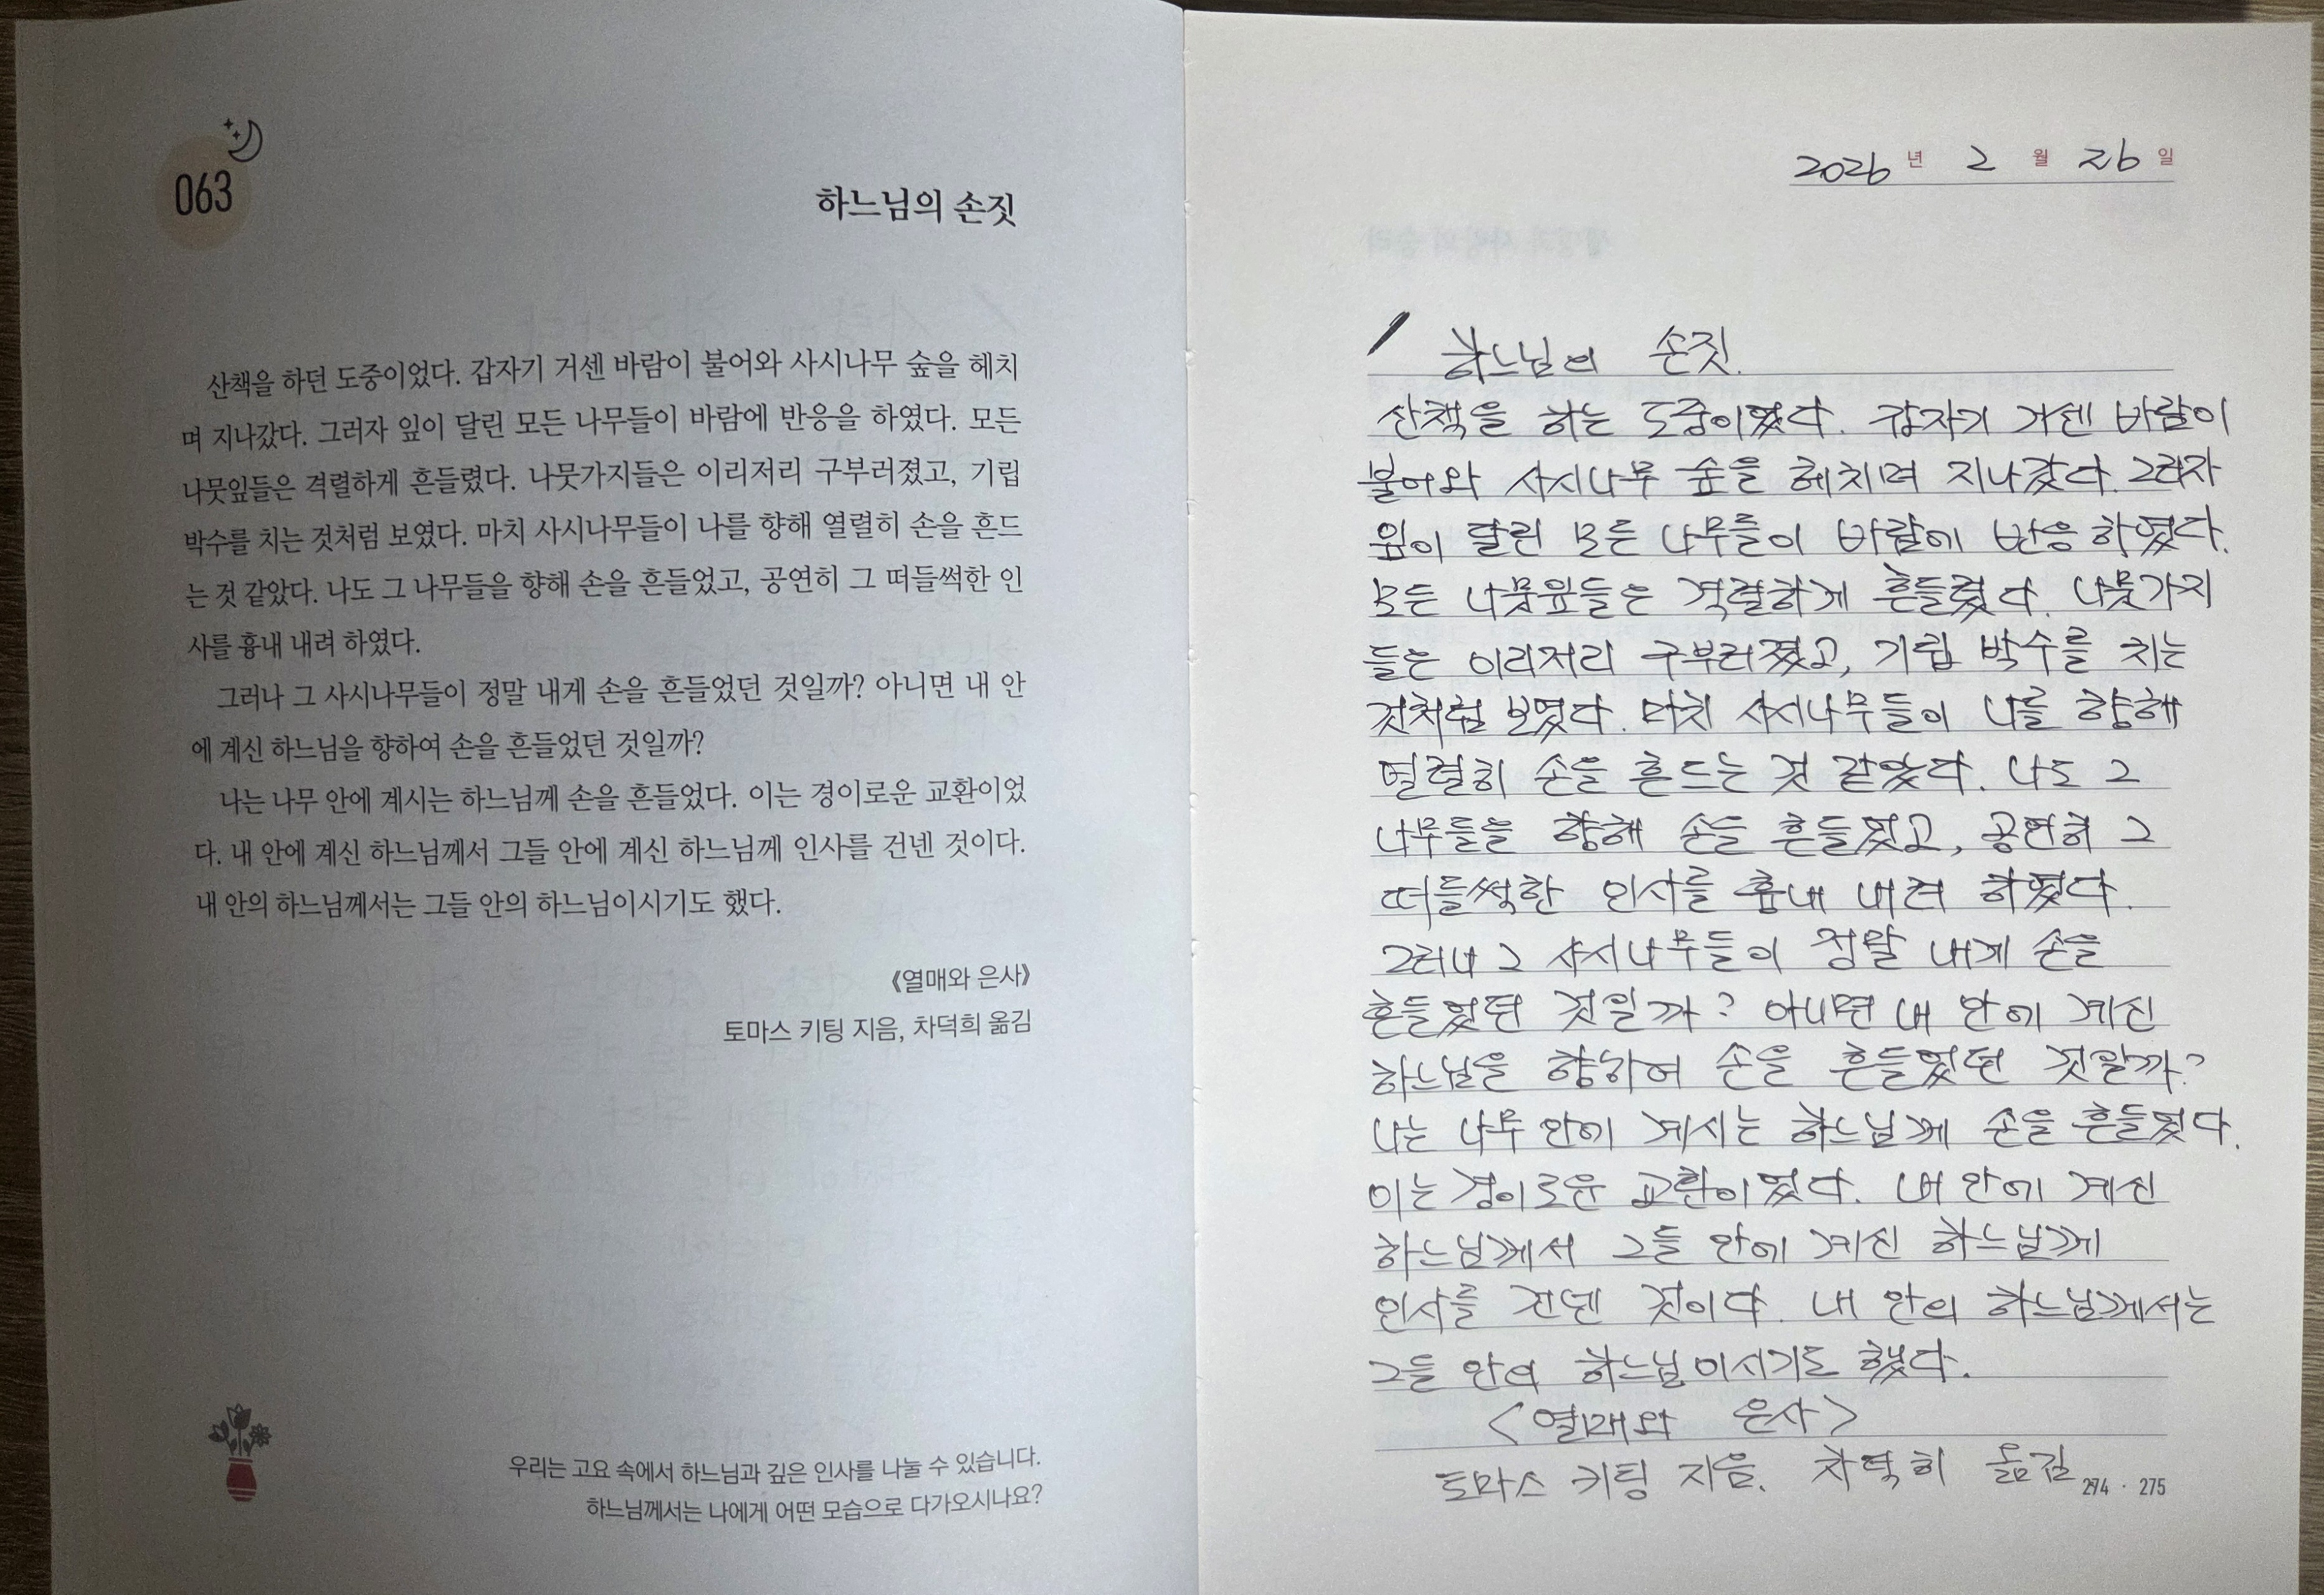 063
하느님의 손짓
산책을 하던 도중이었다. 갑자기 거센 바람이 불어와 사시나무 숲을 헤치
며 지나갔다. 그러자 잎이 달린 모든 나무들이 바람에 반응을 하였다. 모든
나뭇잎들은 격렬하게 흔들렸다. 나뭇가지들은 이리저리 구부러졌고, 기립
박수를 치는 것처럼 보였다. 마치 사시나무들이 나를 향해 열렬히 손을 흔드
는 것 같았다. 나도 그 나무들을 향해 손을 흔들었고, 공연히 그 떠들썩한 인
사를 흉내 내려 하였다.
그러나 그 사시나무들이 정말 내게 손을 흔들었던 것일까? 아니면 내 안
에 계신 하느님을 향하여 손을 흔들었던 것일까?
나는 나무 안에 계시는 하느님께 손을 흔들었다. 이는 경이로운 교환이었
다. 내 안에 계신 하느님께서 그들 안에 계신 하느님께 인사를 건넨 것이다.
내 안의 하느님께서는 그들 안의 하느님이시기도 했다.
《열매와 은사》
토마스 키팅 지음, 차덕희 옮김
우리는 고요 속에서 하느님과 깊은 인사를 나눌 수 있습니다.
하느님께서는 나에게 어떤 모습으로 다가오시나요?
2026 년 2 월 26 일
하느님의 손짓.
산책을 하는 도중이었다. 갑자기 거센 바람이
불어와 사시나무 숲을 헤치며 지나갔다. 그러자
잎이 달린 모든 나무들이 바람에 반응 하였다.
모든 나뭇잎들은 격렬하게 흔들렸다. 나뭇가지
들은 이리저리 구부러졌고, 기립 박수를 치는
것처럼 보였다. 마치 사시나무들이 나를 향해
열렬히 손을 흔드는 것 같았다. 나도 그
나무들을 향해 손을 흔들었고, 공연히 그
떠들썩한 인사를 흉내 내려 하였다.
그러나 그 사시나무들이 정말 내게 손을
흔들었던 것일까? 아니면 내 안에 계신
하느님을 향하여 손을 흔들었던 것일까?
나는 나무 안에 계시는 하느님께 손을 흔들었다.
이는 경이로운 교환이었다. 내 안에 계신
하느님께서 그들 안에 계신 하느님께
인사를 건넨 것이다. 내 안의 하느님께서는
그들 안의 하느님이시기도 했다.
<열매와 은사>
토마스 키팅 지음. 차덕희 옮김
274 · 275